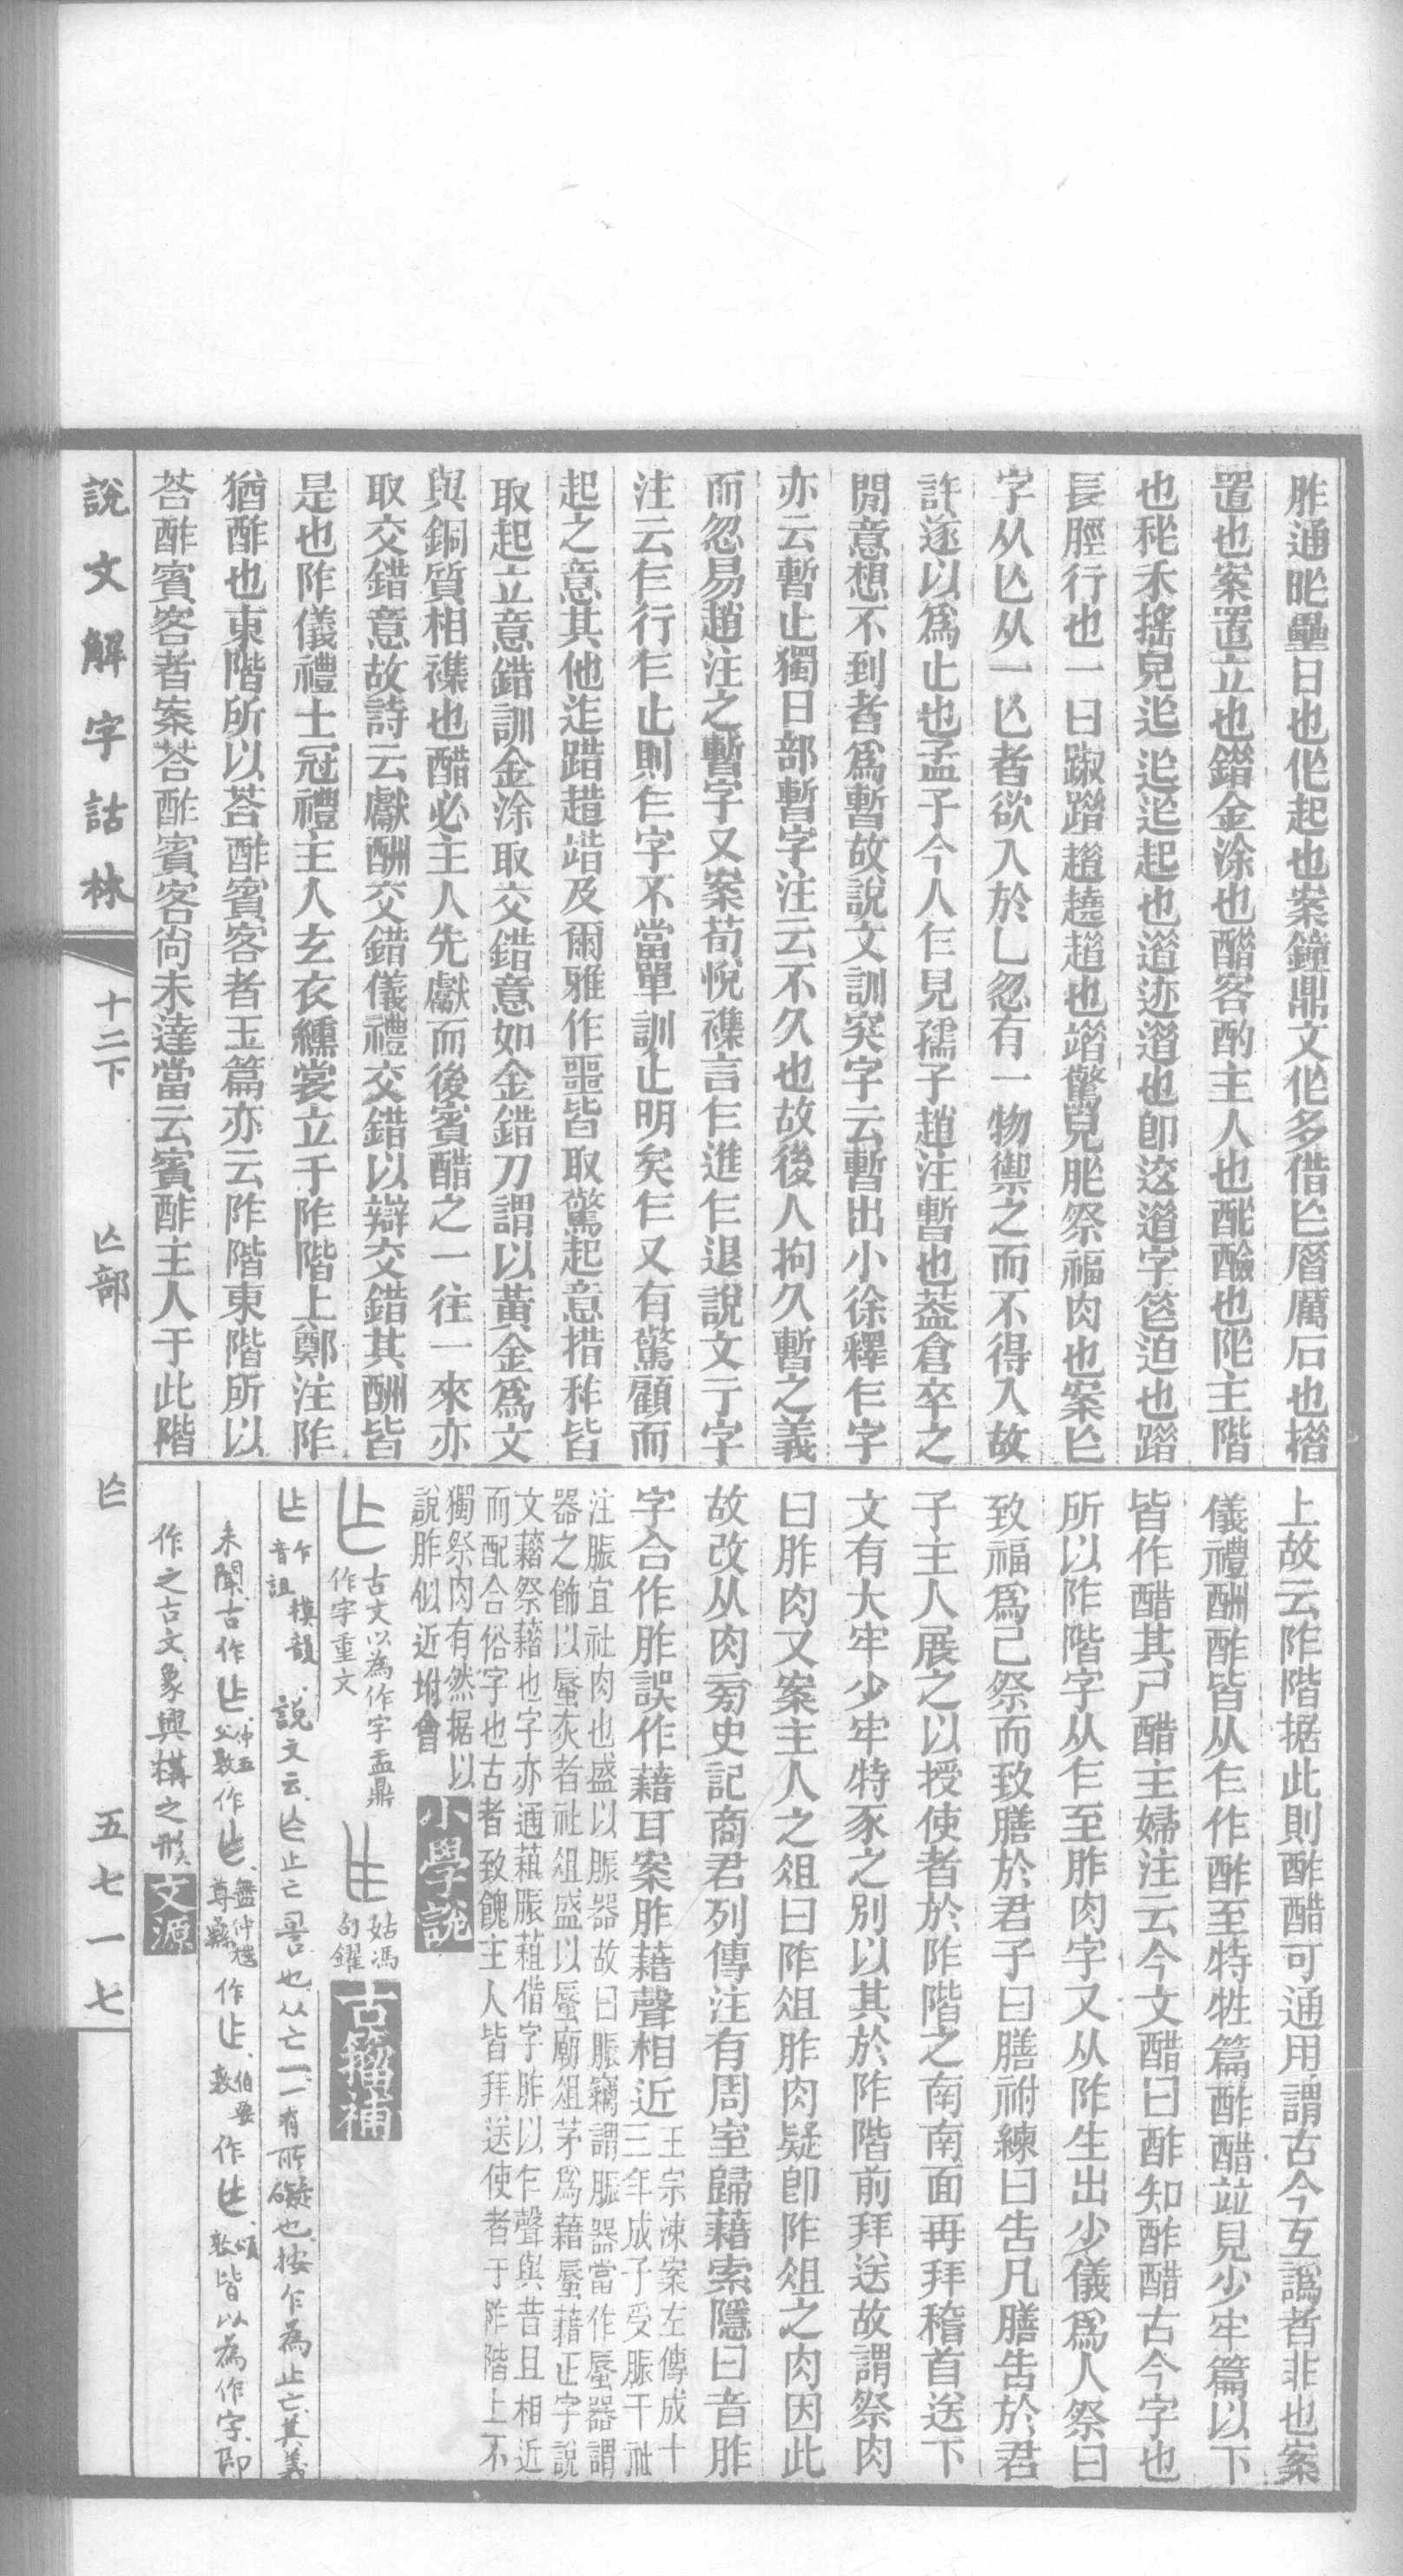 胙通昨壘日也作起也案鐘鼎文作多借亾厝厲石也措
置也案置立也錯金涂也醋客酌主人也酢醶也阼主階
也秨禾搖皃迮迮迮起也逪迹逪也卽这逪字笮迫也踖
長脛行也一曰踧踖趞趬趞也䠓驚皃胙祭福肉也案亾
字从亡从一亡者欲入於乚忽有一物禦之而不得入故
許遂以爲止也孟子今人乍見孺子趙注暫也葢倉卒之
閒意想不到者爲暫故說文訓突字云暫出小徐釋乍字
亦云暫止獨日部暫字注云不久也故後人拘久暫之義
而忽易趙注之暫字又案荀悅襍言乍進乍退說文亍字
注云乍行乍止則乍字不當單訓止明矣乍又有驚顧而
起之意其他迮踖趞䠓及爾雅作噩皆取驚起意措秨皆
取起立意錯訓金涂取交錯意如金錯刀謂以黃金爲文
與銅質相襍也醋必主人先獻而後賓醋之一往一來亦
取交錯意故詩云獻酬交錯儀禮交錯以辯交錯其酬皆
是也阼儀禮士冠禮主人玄衣纁裳立于阼階上鄭注阼
猶酢也東階所以荅酢賓客者玉篇亦云阼階東階所以
荅酢賓客者案荅酢賓客尙未達當云賓酢主人于此階
上故云阼階据此則酢醋可通用謂古今互譌者非也案
儀禮酬酢皆从乍作酢至特牲篇酢醋竝見少牢篇以下
皆作醋其尸醋主婦注云今文醋曰酢知酢醋古今字也
所以阼階字从乍至胙肉字又从阼生出少儀爲人祭曰
致福爲己祭而致膳於君子曰膳祔練曰告凡膳告於君
子主人展之以授使者於阼階之南南面再拜稽首送下
文有大牢少牢特豕之別以其於阼階前拜送故謂祭肉
曰胙肉又案主人之俎曰阼俎胙肉疑卽阼俎之肉因此
故改从肉旁史記商君列傳注有周室歸藉索隱曰音胙
字合作胙誤作藉耳案胙藉聲相近王宗涑案左傳成十
三年成子受脤于社
注脤宜社肉也盛以脤器故曰脤竊謂脤器當作蜃器謂
器之飾以蜃灰者社俎盛以蜃廟俎茅爲藉蜃藉正字說
文藉祭藉也字亦通蒩脤蒩借字胙以乍聲與昔且相近
而配合俗字也古者致餽主人皆拜送使者于阼階上不
獨祭肉有然据以
說胙似近坿會 小學說
古文以為作字盂鼎
作字重文
姑馮
句鑃 古籀補
乍音詛模韻 說文云亾止亡䛐也从亡一一有所礙也按乍為止亡其義
未聞古作 仲五父敦作 盤仲㮰尊彝作 伯要敦作 頌敦皆以為作字即
作之古文象興構之形 文源
說文解字詁林
十二下
亾部
亾
五七一七